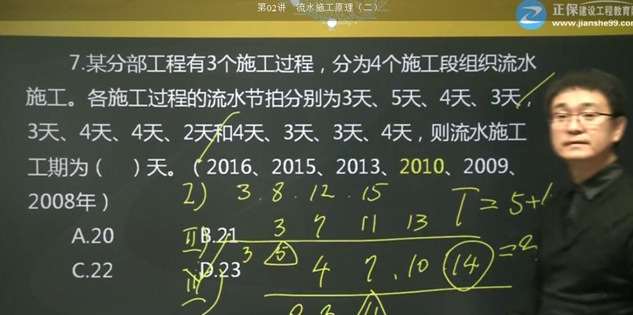 第02讲 流水施工原理（二）
正保建设工程教育网
www.jianshe99.com
7.某分部工程有3个施工过程，分为4个施工段组织流水
施工。各施工过程的流水节拍分别为3天、5天、4天、3天，
3天、4天、4天、2天和4天、3天、3天、4天，则流水施工
工期为（ ）天。（2016、2015、2013、2010、2009、
2008年）
I) 3 . 8 . 12 . 15
T = 5+
A.20
II B.21 3 7 11 13
C.22
III D.23 3 5 4 7 . 10 14 =